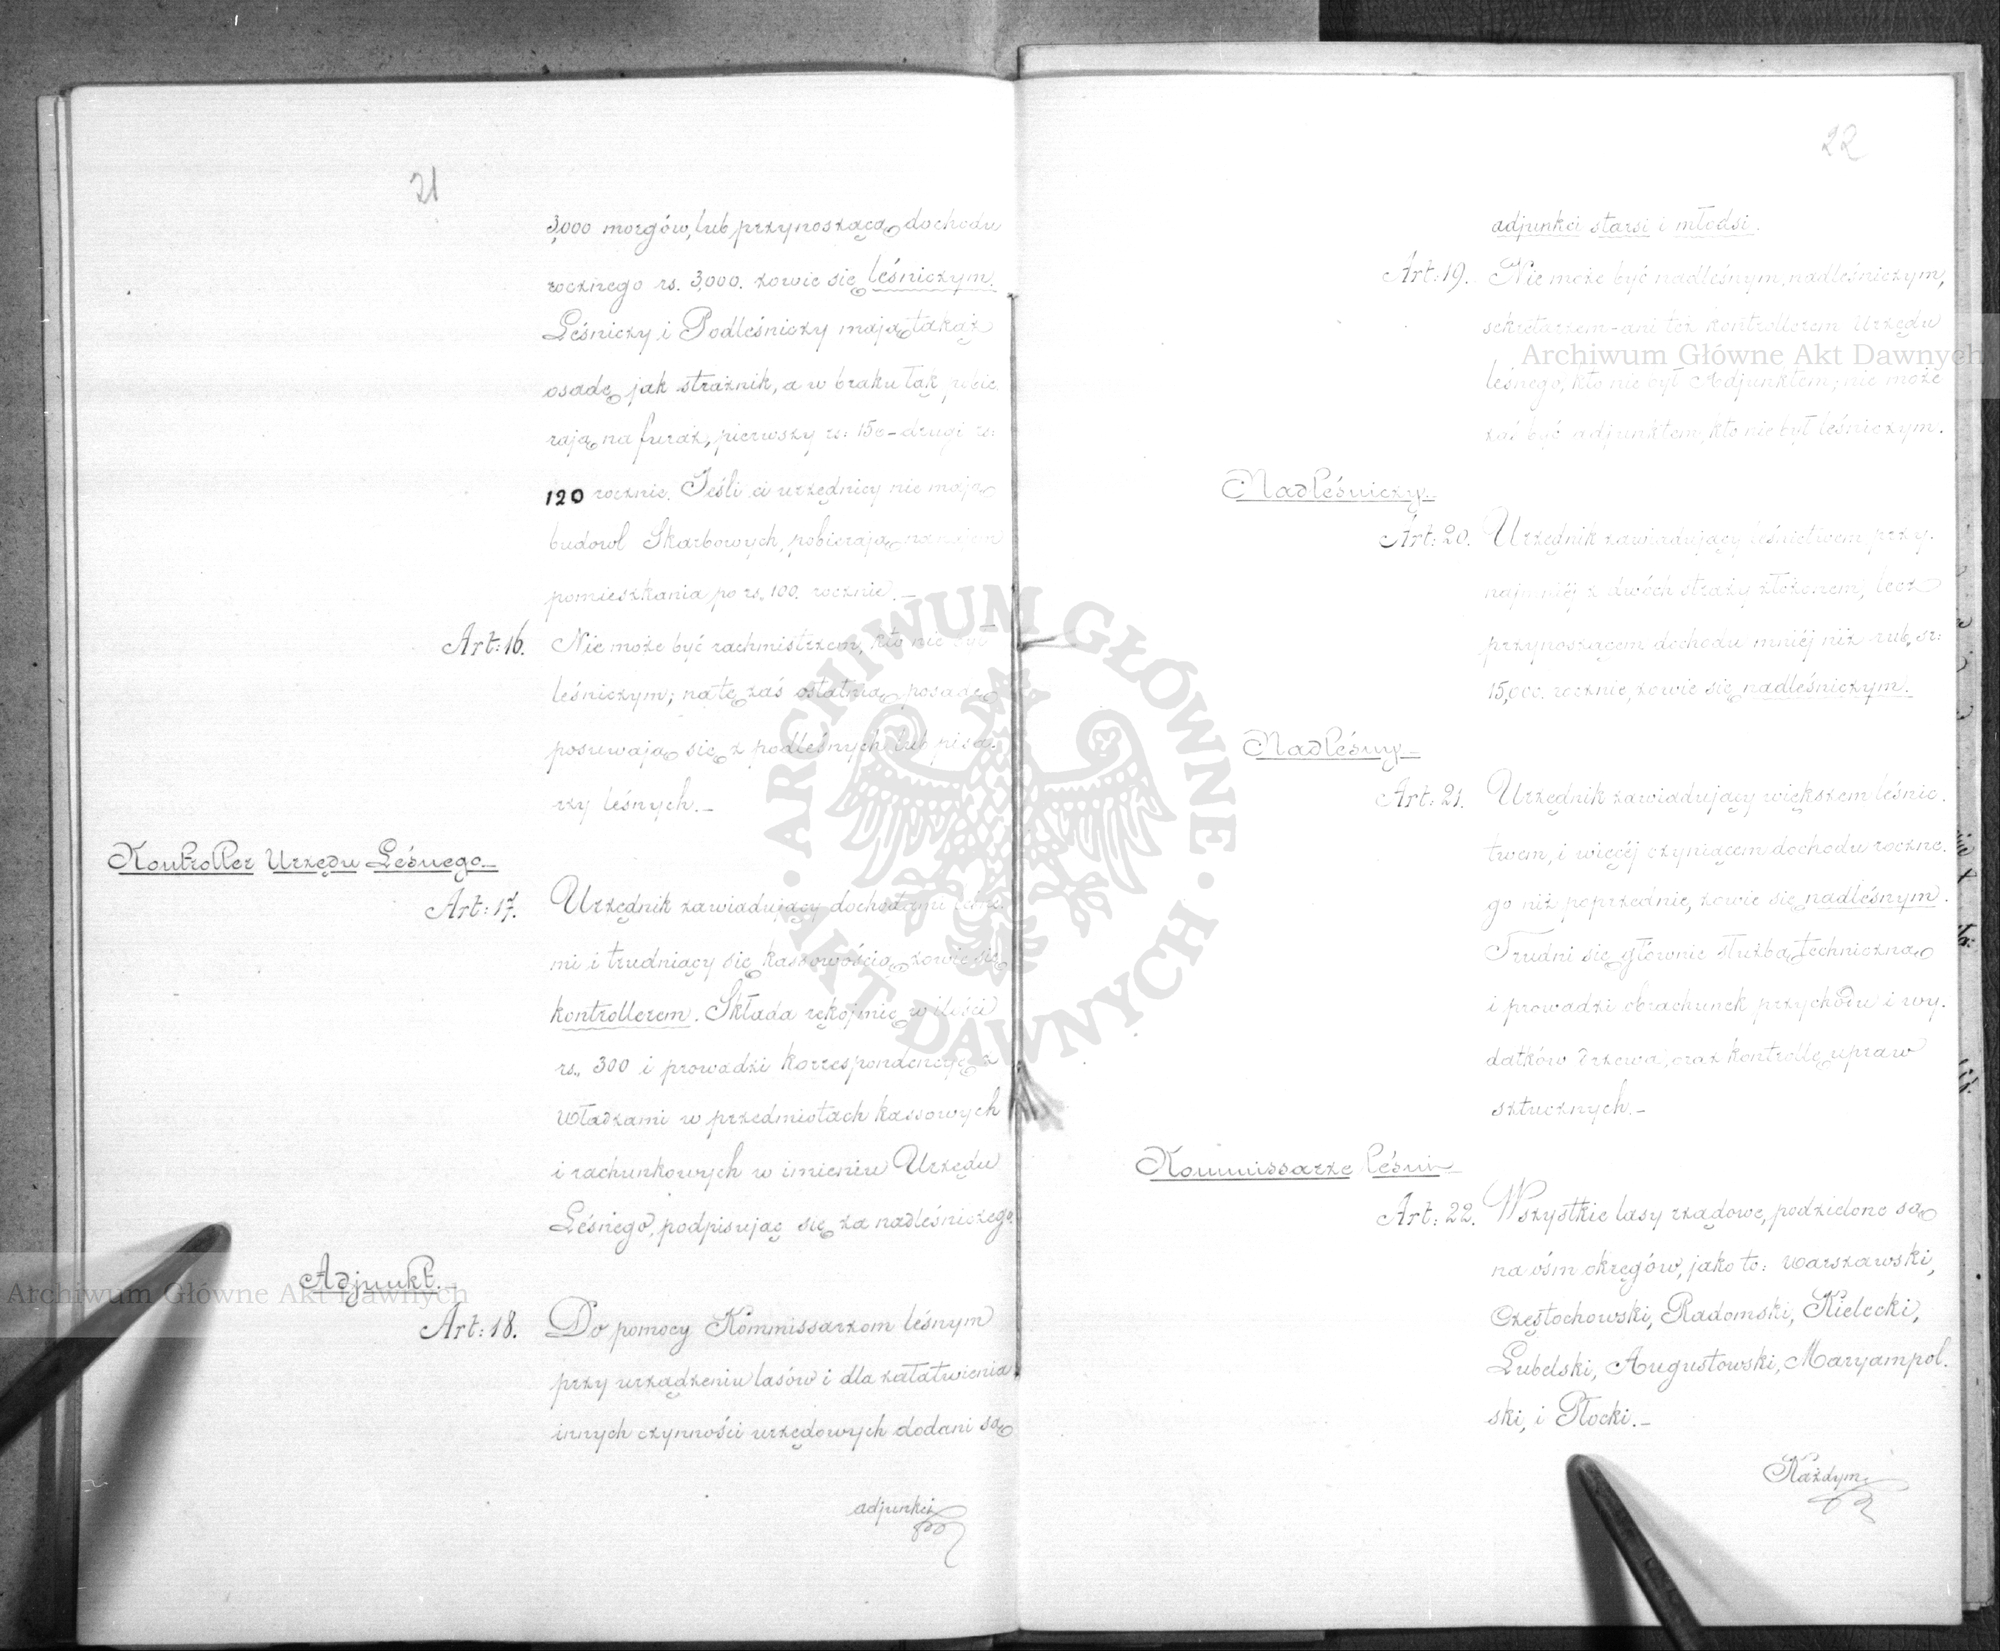 21
3,000 morgów, lub przynoszącą dochodu
rocznego rs. 3,000. zowie się leśniczym.
Leśniczy i Podleśniczy mają takąż
osadę jak strażnik, a w braku tak pobie-
rają na furaż, pierwszy rs: 150 - drugi rs:
120 rocznie. Jeśli ci urzędnicy nie mają
budowl Skarbowych, pobierają na najem
pomieszkania po rs. 100. rocznie. –
Art: 16. Nie może być rachmistrzem, kto nie był
leśniczym; na tę zaś ostatnią posadę
posuwają się z podleśnych lub pisa-
rzy leśnych. –
Kontroller Urzędu Leśnego –
Art: 17. Urzędnik zawiadujący dochodami leśne-
mi i trudniący się kassowością, zowie się
kontrollerem. Składa rękojmię w ilości
rs. 300 i prowadzi korrespondencyę z
Władzami w przedmiotach kassowych
i rachunkowych w imieniu Urzędu
Leśnego, podpisując się za nadleśniczego.
Adjunkt.
Art: 18. Do pomocy Kommissarzom leśnym
przy urządzeniu lasów i dla załatwienia
innych czynności urzędowych dodani są
adjunkci
22
adjunkci starsi i młodsi.
Art: 19. Nie może być nadleśnym, nadleśniczym,
sekretarzem - ani też kontrollerem Urzędu
leśnego, kto nie był Adjunktem; nie może
zaś być adjunktem, kto nie był leśniczym.
Nadleśniczy. –
Art: 20. Urzędnik zawiadujący leśnictwem przy-
najmniéj z dwóch straży złożonem, lecz
przynoszącem dochodu mniéj niż rub. sr:
15,000. rocznie, zowie się nadleśniczym.
Nadleśny –
Art: 21. Urzędnik zawiadujący większem leśnic-
twem, i więcéj czyniącem dochodu roczne-
go niż poprzednie, zowie się nadleśnym.
Trudni się głównie służbą techniczną
i prowadzi obrachunek przychodu i wy-
datków drzewa, oraz kontrollę upraw
sztucznych. –
Kommissarze leśni –
Art: 22. Wszystkie lasy rządowe, podzielone są
na ośm okręgów, jako to: Warszawski,
Częstochowski, Radomski, Kielecki,
Lubelski, Augustowski, Maryampol-
ski, i Płocki. –
Każdym
ARCHIWUM GŁÓWNE
AKT DAWNYCH
Archiwum Główne Akt Dawnych
Archiwum Główne Akt Dawnych